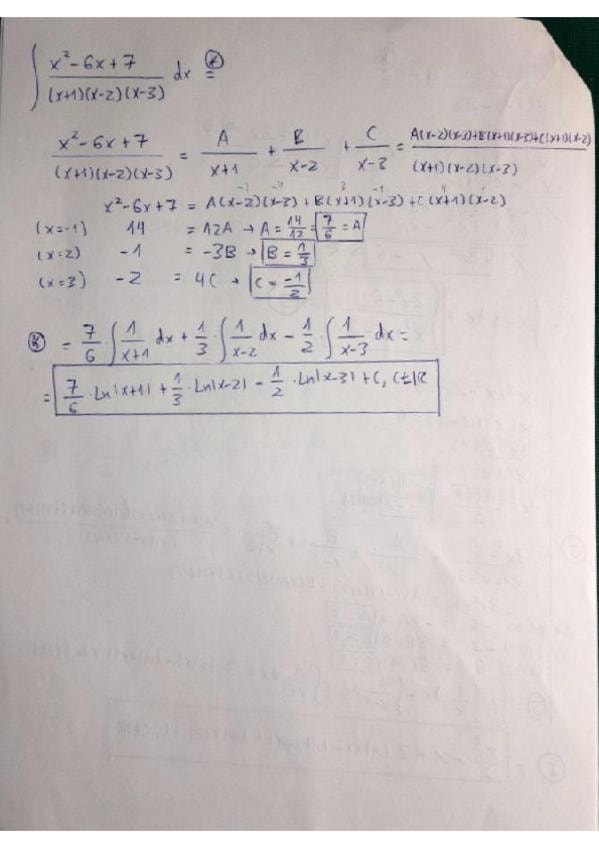 ∫ (x²-6x+7)/((x+1)(x-2)(x-3)) dx = (*)
(x²-6x+7)/((x+1)(x-2)(x-3)) = A/(x+1) + B/(x-2) + C/(x-3) = (A(x-2)(x-3)+B(x+1)(x-3)+C(x+1)(x-2))/((x+1)(x-2)(x-3))
x²-6x+7 = A(x-2)(x-3)+B(x+1)(x-3)+C(x+1)(x-2)
(x=-1) 14 = 12A → A = 14/12 = 7/6 = A
(x=2) -1 = -3B → B = 1/3
(x=3) -2 = 4C → C = -1/2
(*) = 7/6 · ∫ 1/(x+1) dx + 1/3 · ∫ 1/(x-2) dx - 1/2 ∫ 1/(x-3) dx =
= 7/6 · Ln|x+1| + 1/3 · Ln|x-2| - 1/2 · Ln|x-3| + C, C∈ℝ